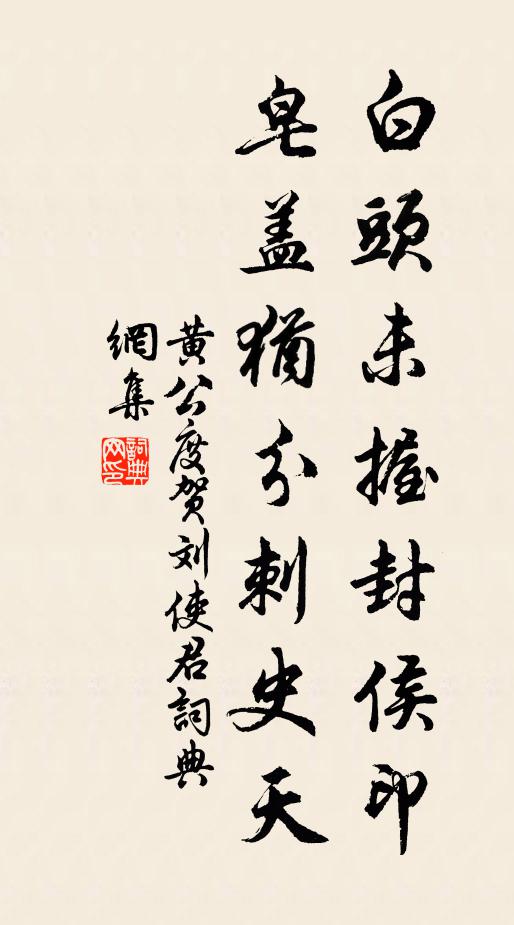 白頭未握封侯印
皂盖猶分刺史天
黄公度贺刘使君詞典
網集
詞典網印